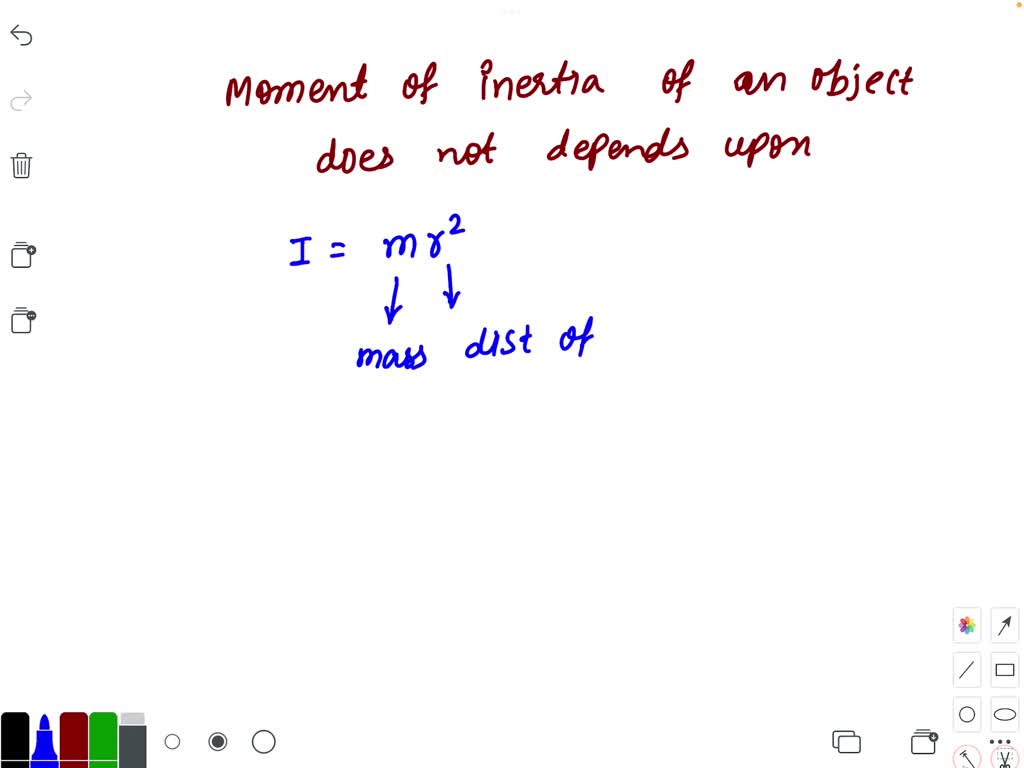 Moment of inertia of an object
does not depends upon
I = mr²
mass dist of